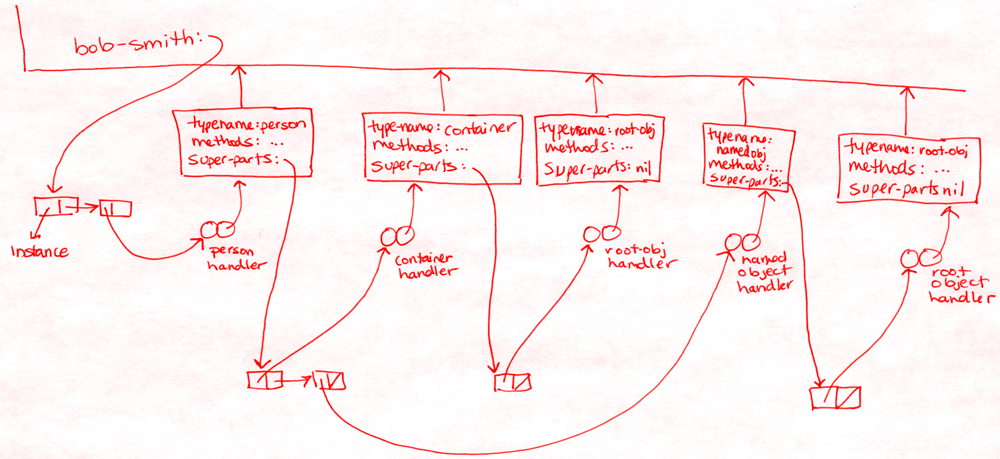 bob-smith:
typename: person
methods: ...
super-parts:
type-name: container
methods: ...
super-parts:
typename: root-obj
methods: ...
super-parts: nil
typename:
named obj
methods: ...
super-parts:
typename: root-obj
methods: ...
super-parts nil
instance
person
handler
container
handler
root-obj
handler
named
object
handler
root
object
handler